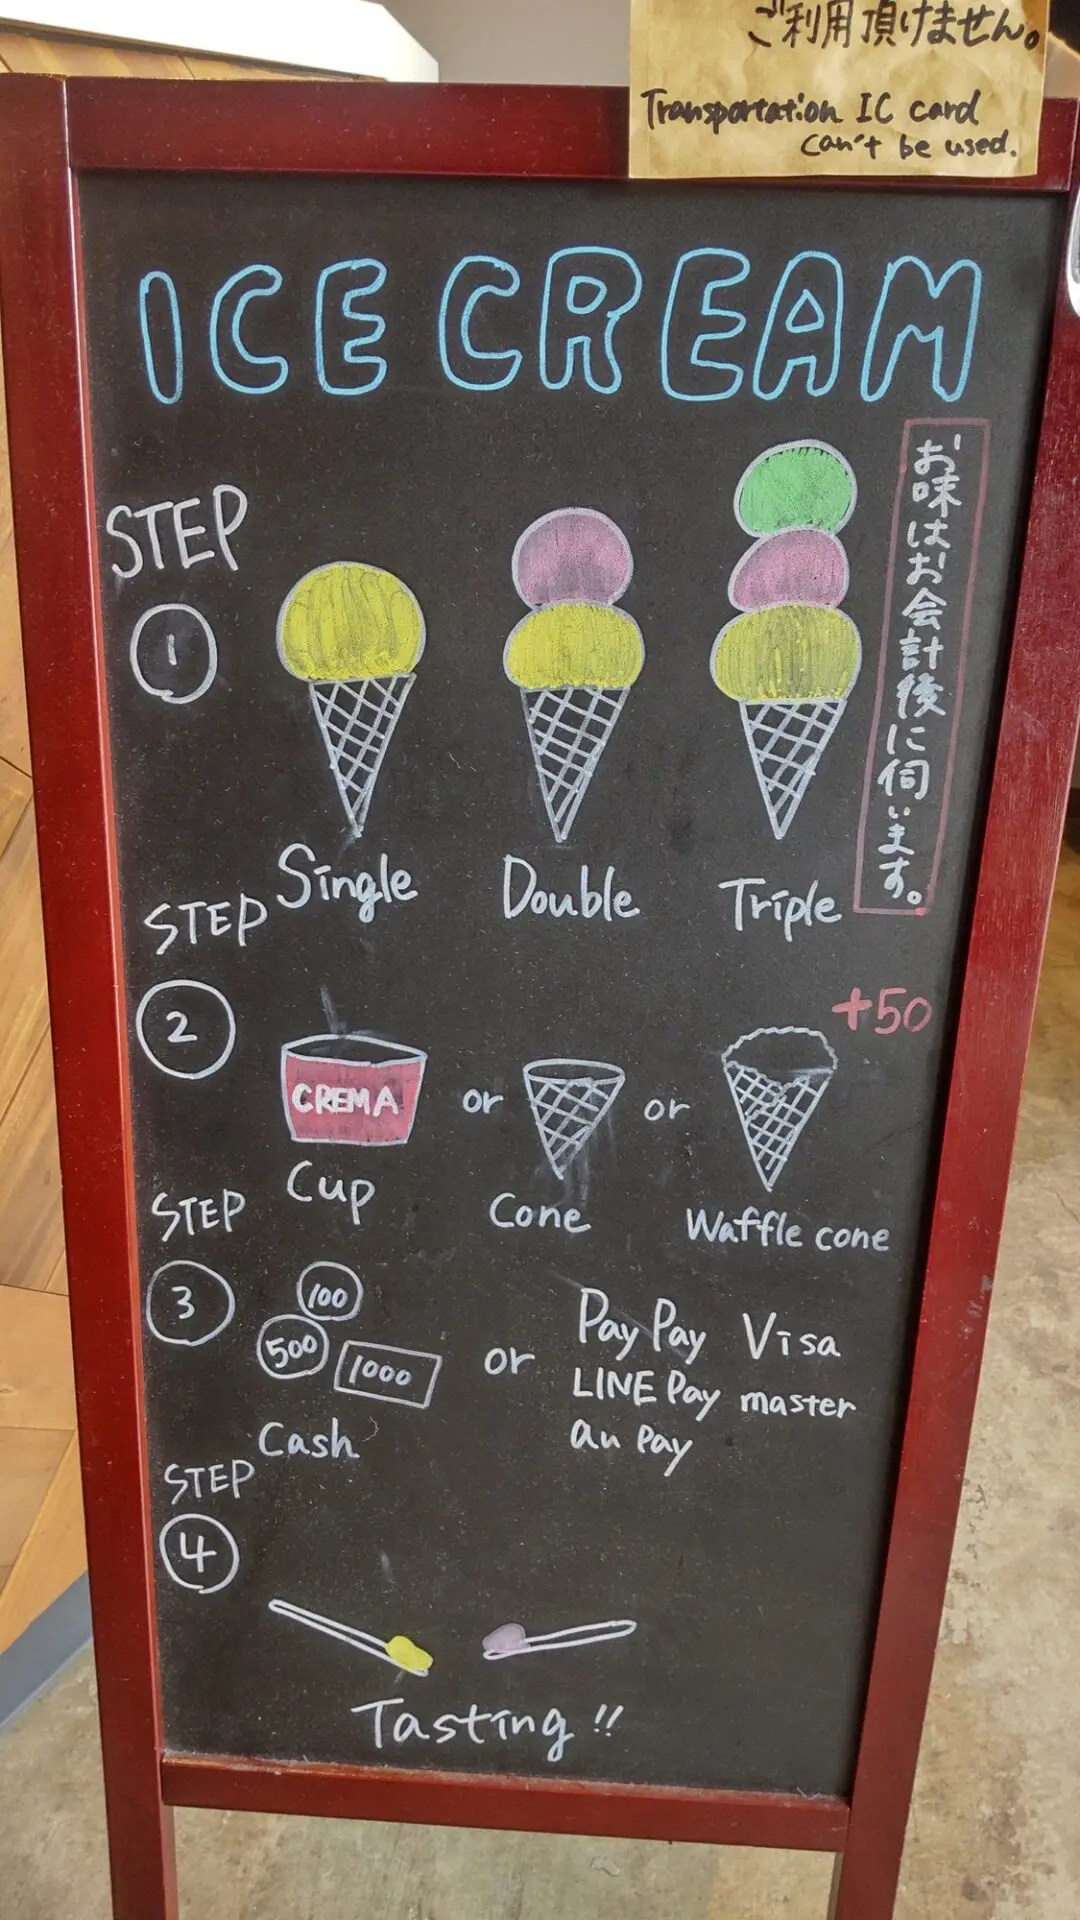 ご利用頂けません。
Transportation IC card
can't be used.
ICE CREAM
お味はお会計後に伺います。
STEP
1
Single
Double
Triple
STEP
2
+50
CREMA
or
or
Cup
Cone
Waffle cone
STEP
3
100
500
1000
Cash
or
PayPay Visa
LINE Pay master
au pay
STEP
4
Tasting!!